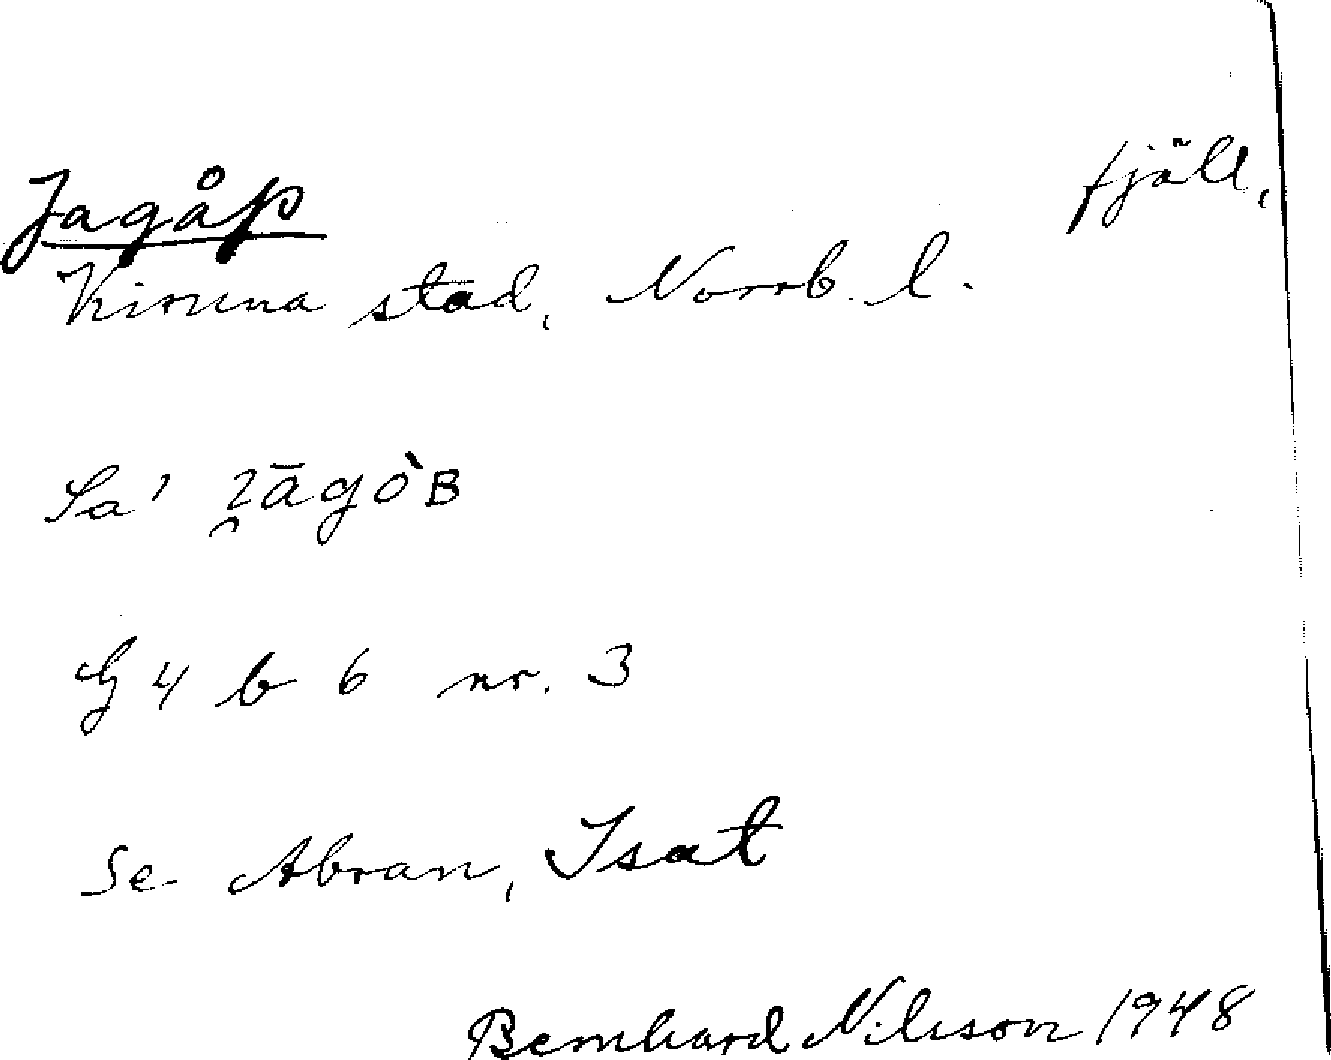 Jagåp fjäll,
Kiruna stad, Norrb. l.
Sa' i̯āgòʙ
G 4 b 6 nr. 3
Se Abran, Isat
Bernhard Nilsson 1948